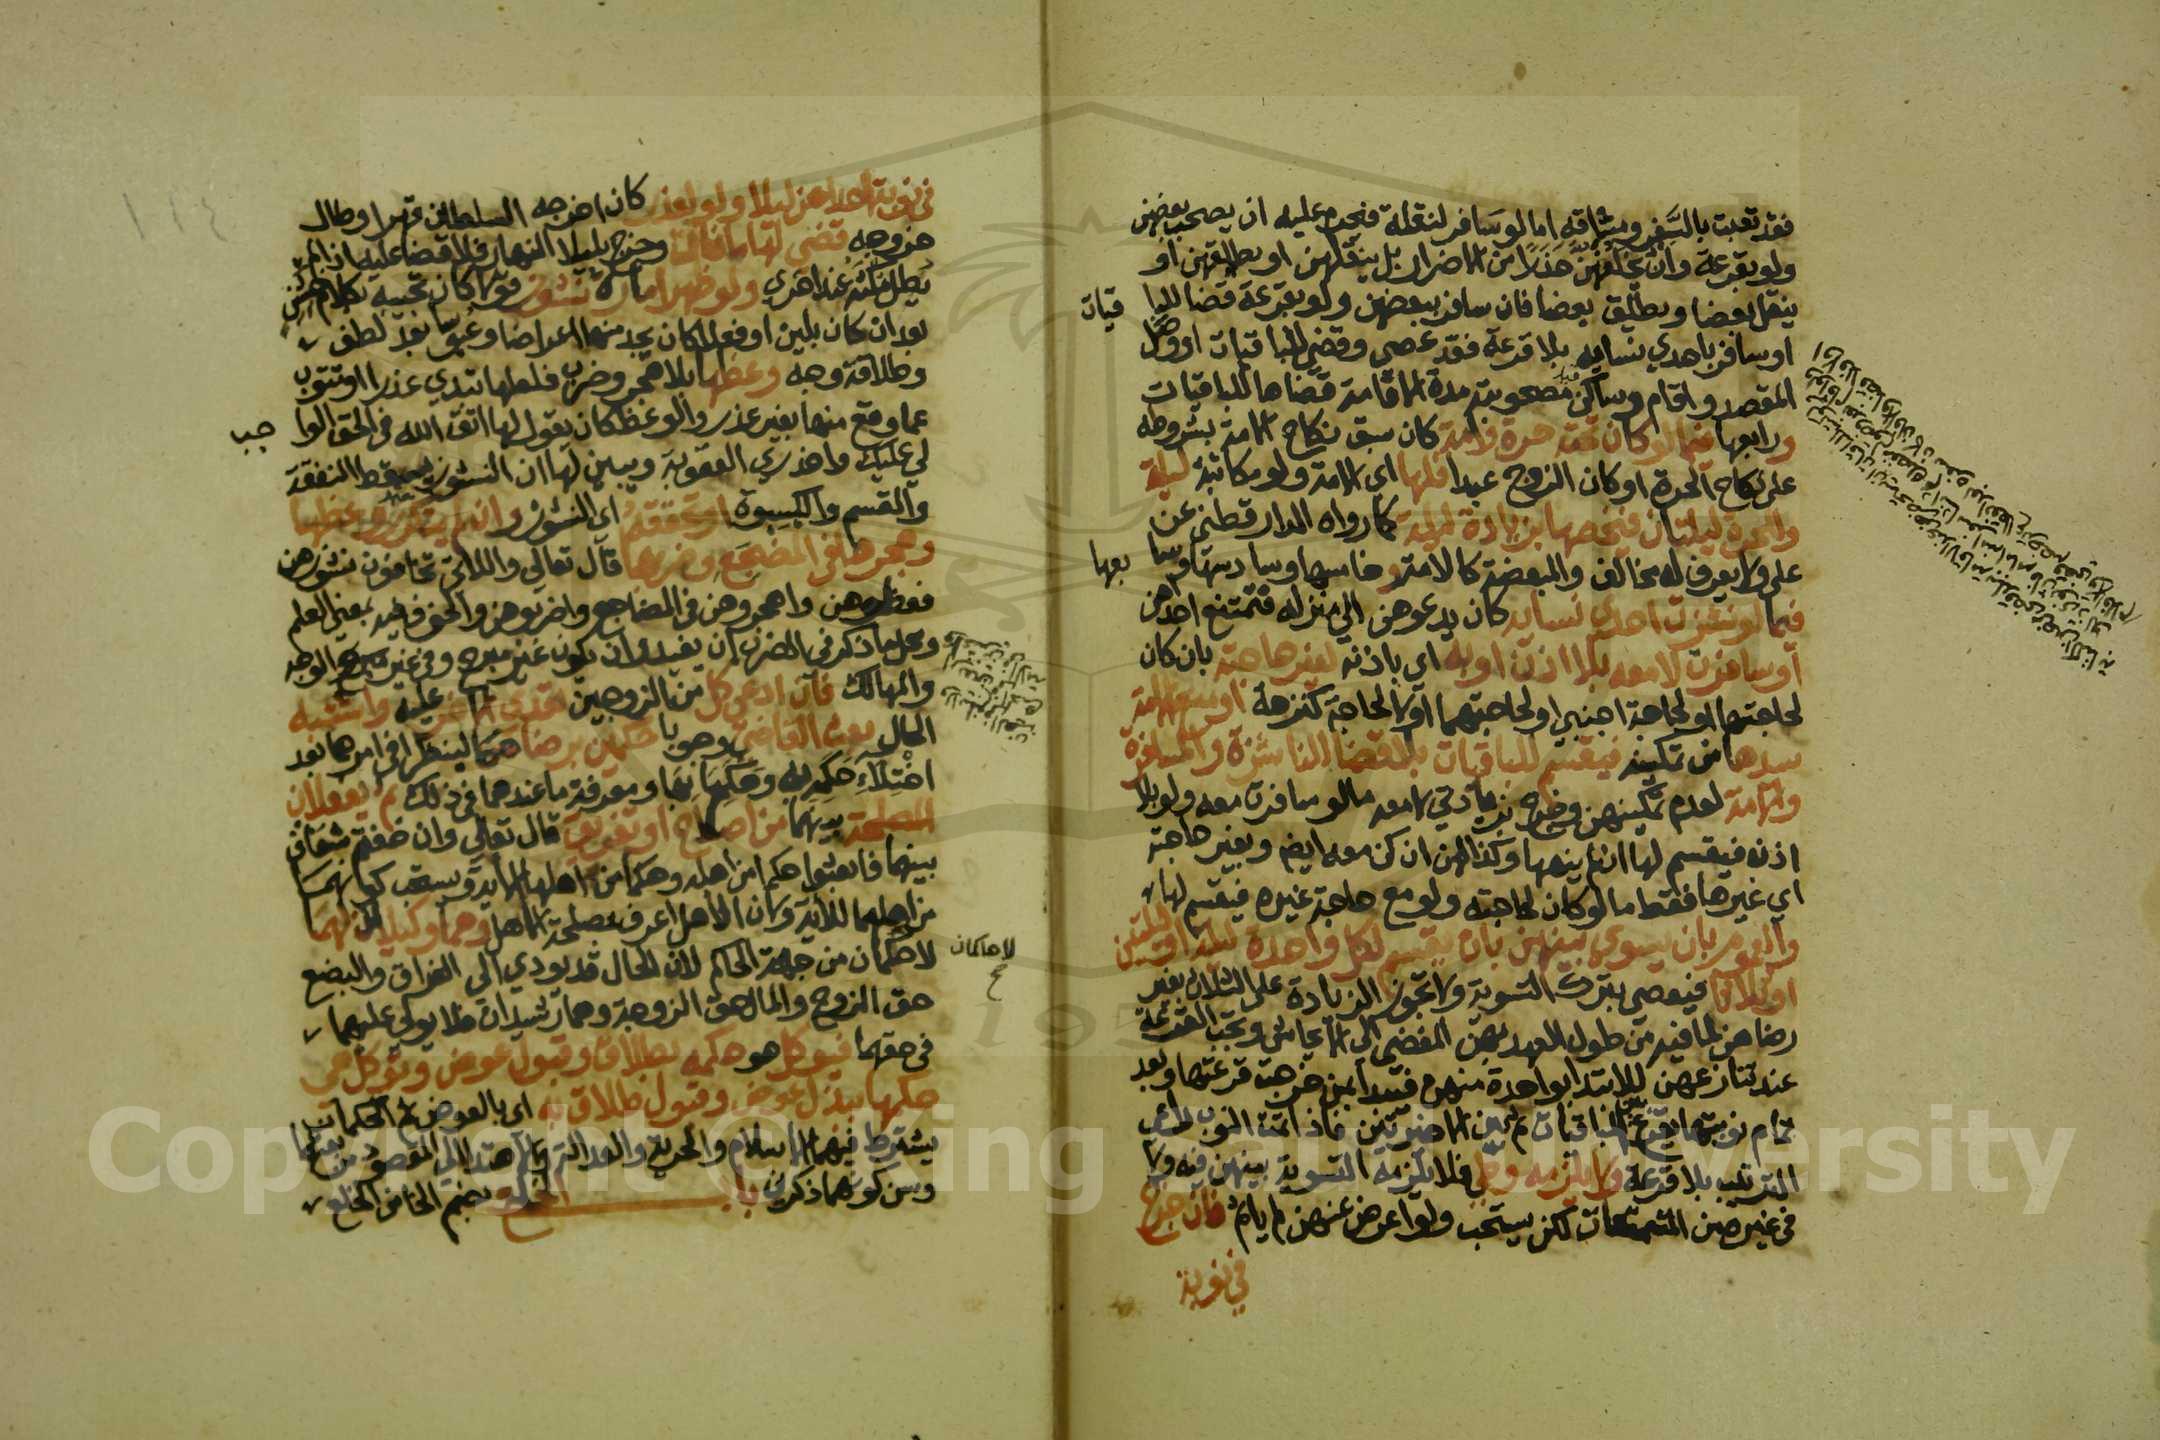 فقد تعبت بالسفر ومشاقه اما لو سافر لنقلة فيحرم عليه ان يصحب بعضهن
ولو بقرعة وان يخلفهن حذرا من الاضرار بل ينقلهن او يطلقهن او
ينقل بعضا ويطلق بعضا فان سافر ببعضهن ولو بقرعة قضا للبا
قيات
او سافر باحدي نسايه بلا قرعة فقد عصي وقضي للباقيات او وصل
المقصد واقام وساكن مصحوبته مدة الاقامة قضاها للباقيات
ورابعها فيما لو كان تحته حرة وامة كان سبق نكاح الامة بشروطه
علي نكاح الحرة او كان الزوج عبدا فلها اي الامة ولو مكاتبة ليلة
والحرة ليلتان فيخصها بزيادة ليلة كما رواه الدارقطني عن
علي ولا يعرف له مخالف والمبعضة كالامة وخامسها وسادستها وسا
بعها
فيما لو نشزت احدي نسايه كان يدعوهن الي منزله فتمتنع احداهن
او سافرت لا معه بلا اذن او به اي باذنه لغير حاجته بان كان
لحاجتها او لحاجة اجنبي او لحاجتهما او لا لحاجة كنزهة او منع الامة
سيدها من تمكينه فيقسم للباقيات بلا قضا للناشزة والمسافرة
والامة لعدم تمكينهن وخرج بزيادتي لا معه ما لو سافرت معه ولو بلا
اذنه فيقسم لها ان لم ينهها وكذا لهن ان كن معه ايضا وبغير حاجته
اي غيرها فقط ما لو كان لحاجته ولو مع حاجة غيره فيقسم لها
والعود بان يسوي بينهن بان يقسم لكل واحدة ليلة او ليلتين
او ثلاثا فيعصي بترك التسوية ولا تجوز الزيادة علي الثلاث بغير
رضاهن لما فيه من طول العهد بهن المفضي الي الايحاش وتجب القرعة
عند تنازعهن للابتدا بواحدة منهن فيبدا بمن خرجت قرعتها وبعد
تمام نوبتها يقرع بين الباقيات ثم بين الاخيرتين فاذا تمت النوب راعي
الترتيب بلا قرعة ولا يلزمه وطي فلا تلزمه التسوية بينهن فيه ولا
في غيره من التمتعات لكن يستحب ولو اعرض عنهن لم ياثم فان خرج
في نوبة
في نوبة احداهن ليلا ولو لعذر كان اخرجه السلطان قهرا وطال
خروجه قضي لها ما فات وخرج بليلا النهار فلا قضا عليه اذا لم
يطل مكثه عند اخري ولو ظهر امارة نشوز قولا كان تجيبه بكلام خشن
بعد ان كان بلين او فعلا كان يجد منها اعراضا وعبوسا بعد لطف
وطلاقة وجه وعظها بلا هجر وضرب فلعلها تبدي عذرا او تتوب
عما وقع منها بغير عذر والوعظ كان يقول لها اتق الله في الحق الوا
جب
لي عليك واحذري العقوبة ويبين لها ان النشوز يسقط النفقة
والقسم والكسوة او تحققه اي النشوز وان لم يتكرر وعظها
وهجرها في المضجع وضربها قال تعالي واللاتي تخافون نشوزهن
فعظوهن واهجروهن في المضاجع واضربوهن والخوف فيه بمعني العلم
ومحل ما ذكر في الضرب ان يفيد وان يكون غير مبرح وفي غير الوجه
والمهالك فان ادعي كل من الزوجين تعدي الاخر عليه واشتبه
الحال بعث القاضي وجوبا حكمين برضاهما لينظرا في امرهما بعد
اختلاء حكمه به وحكمها بها ومعرفة ما عندهما في ذلك ثم يفعلان
المصلحة بينهما من اصلاح او تفريق قال تعالي وان خفتم شقاق
بينهما فابعثوا حكما من اهله وحكما من اهلها الاية ويستحب كونهما
من اهلهما للاية ولان الاهل اعرف بمصلحة الاهل وهما وكيلان لهما
لا حكمان من جهة الحاكم لان الحال قد يودي الي الفراق والبضع
لا حاكمان
صح
حق الزوج والمال حق الزوجة وهما رشيدان فلا يولي عليهما
في حقهما فيوكل هو حكمه بطلاق وقبول عوض وتوكل هي
حكمها ببذل عوض وقبول طلاق به اي بالعوض ثم الحكمان
يشترط فيهما الاسلام والحرية والعدالة والاهتدا الي المقصود من بعثهما
وسن كونهما ذكرين باب الخلع بضم الخا من الخلع